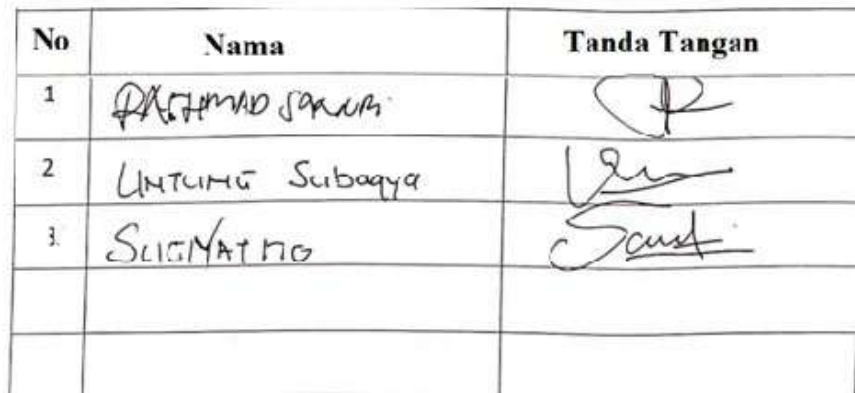 No Nama Tanda Tangan
1 RACHMAD
2 UNTUNG Subagya
3. SUGIYATNO